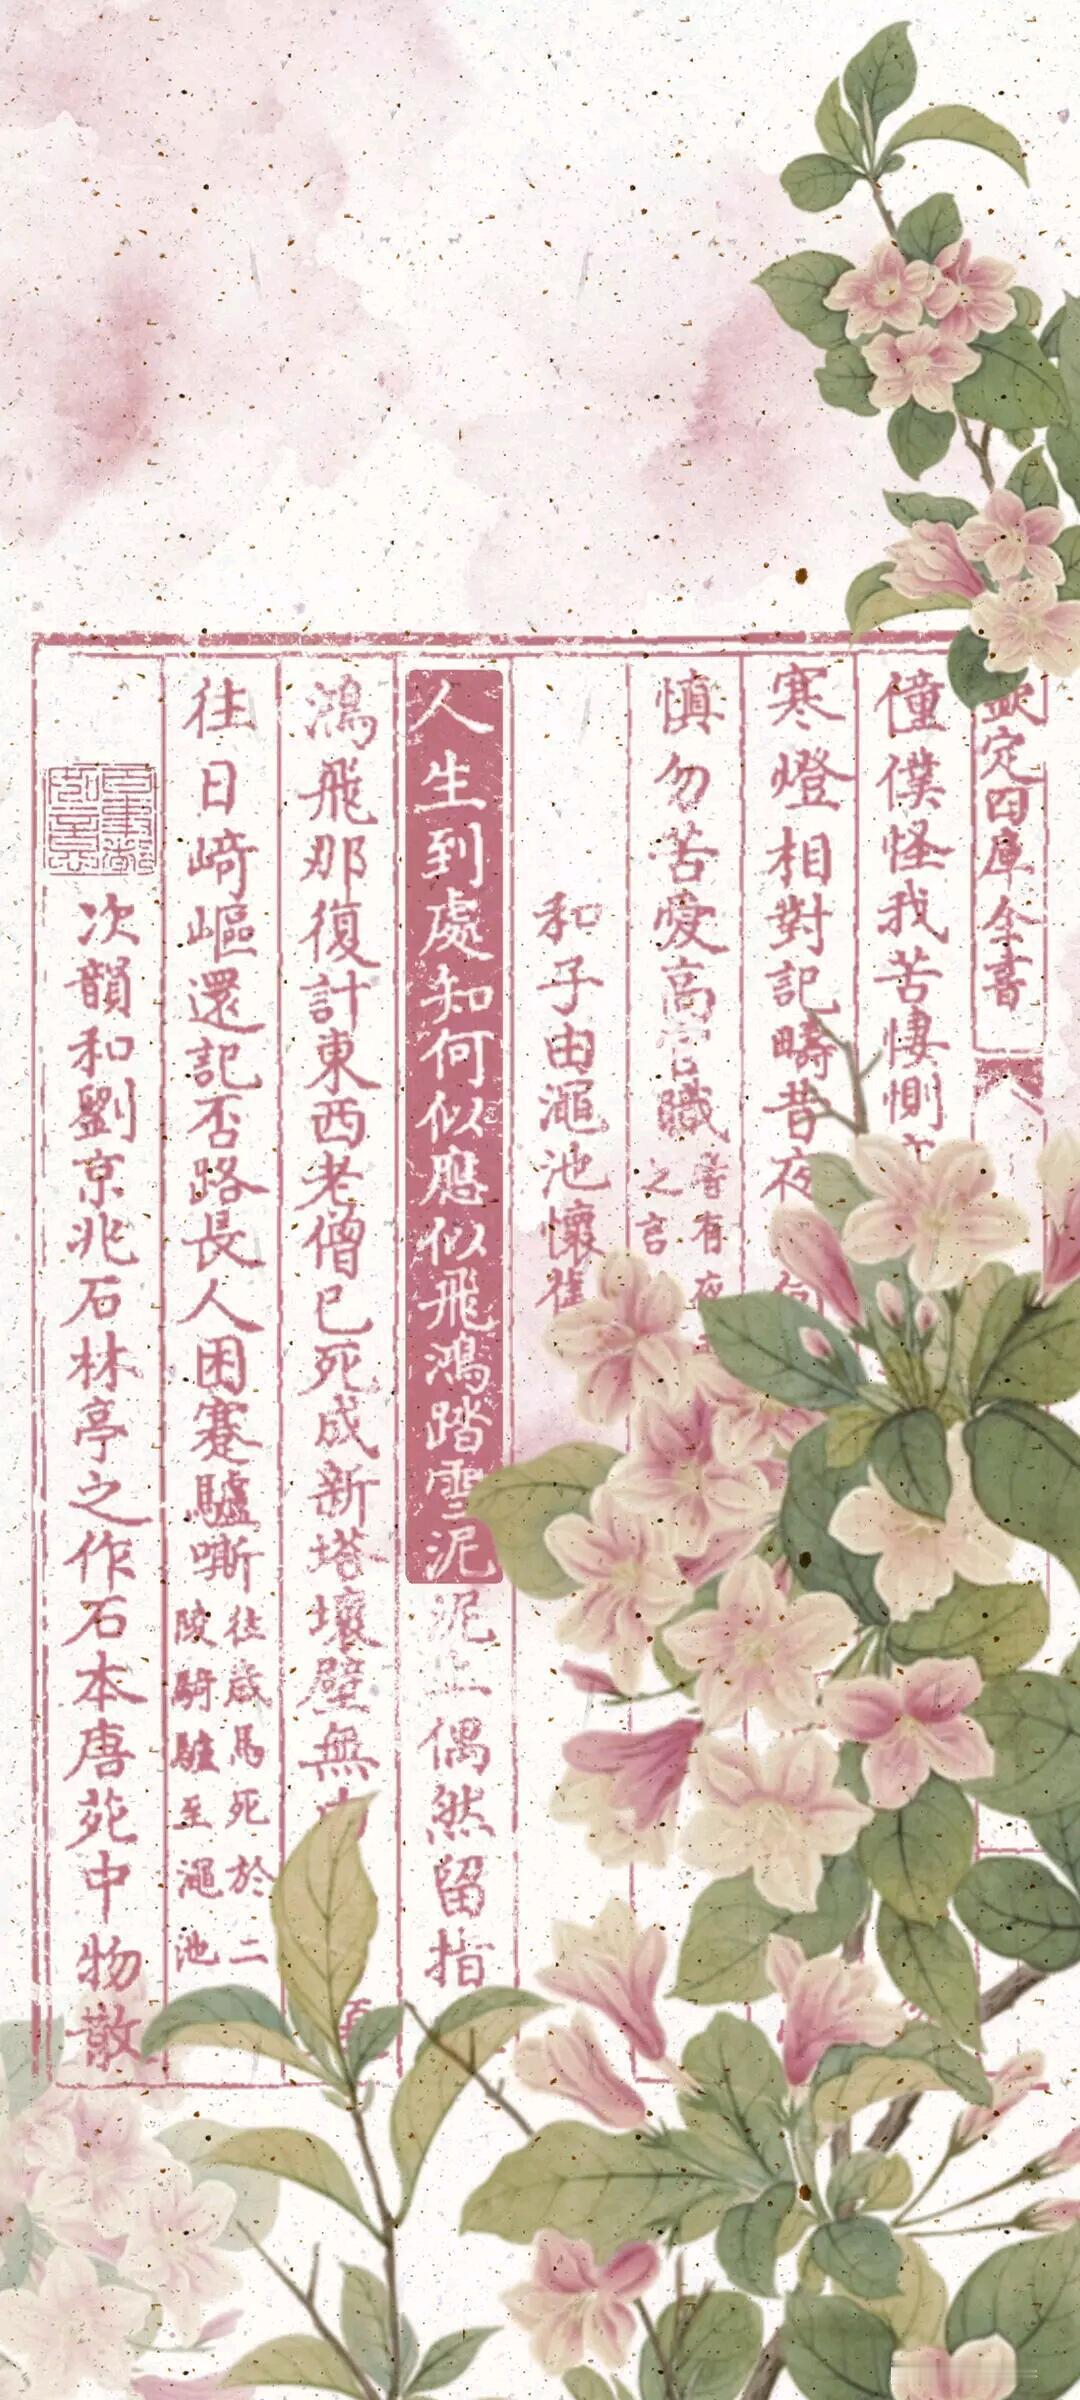 欽定四庫全書
僮僕怪我苦悽惻
寒燈相對記疇昔夜
慎勿苦愛高官職
有夜
之言
和子由澠池懷舊
人生到處知何似應似飛鴻踏雪泥泥上偶然留指
鴻飛那復計東西老僧已死成新塔壞壁無
往日崎嶇還記否路長人困蹇驢嘶
往歲馬死於二
陵騎驢至澠池
次韻和劉京兆石林亭之作石本唐苑中物散